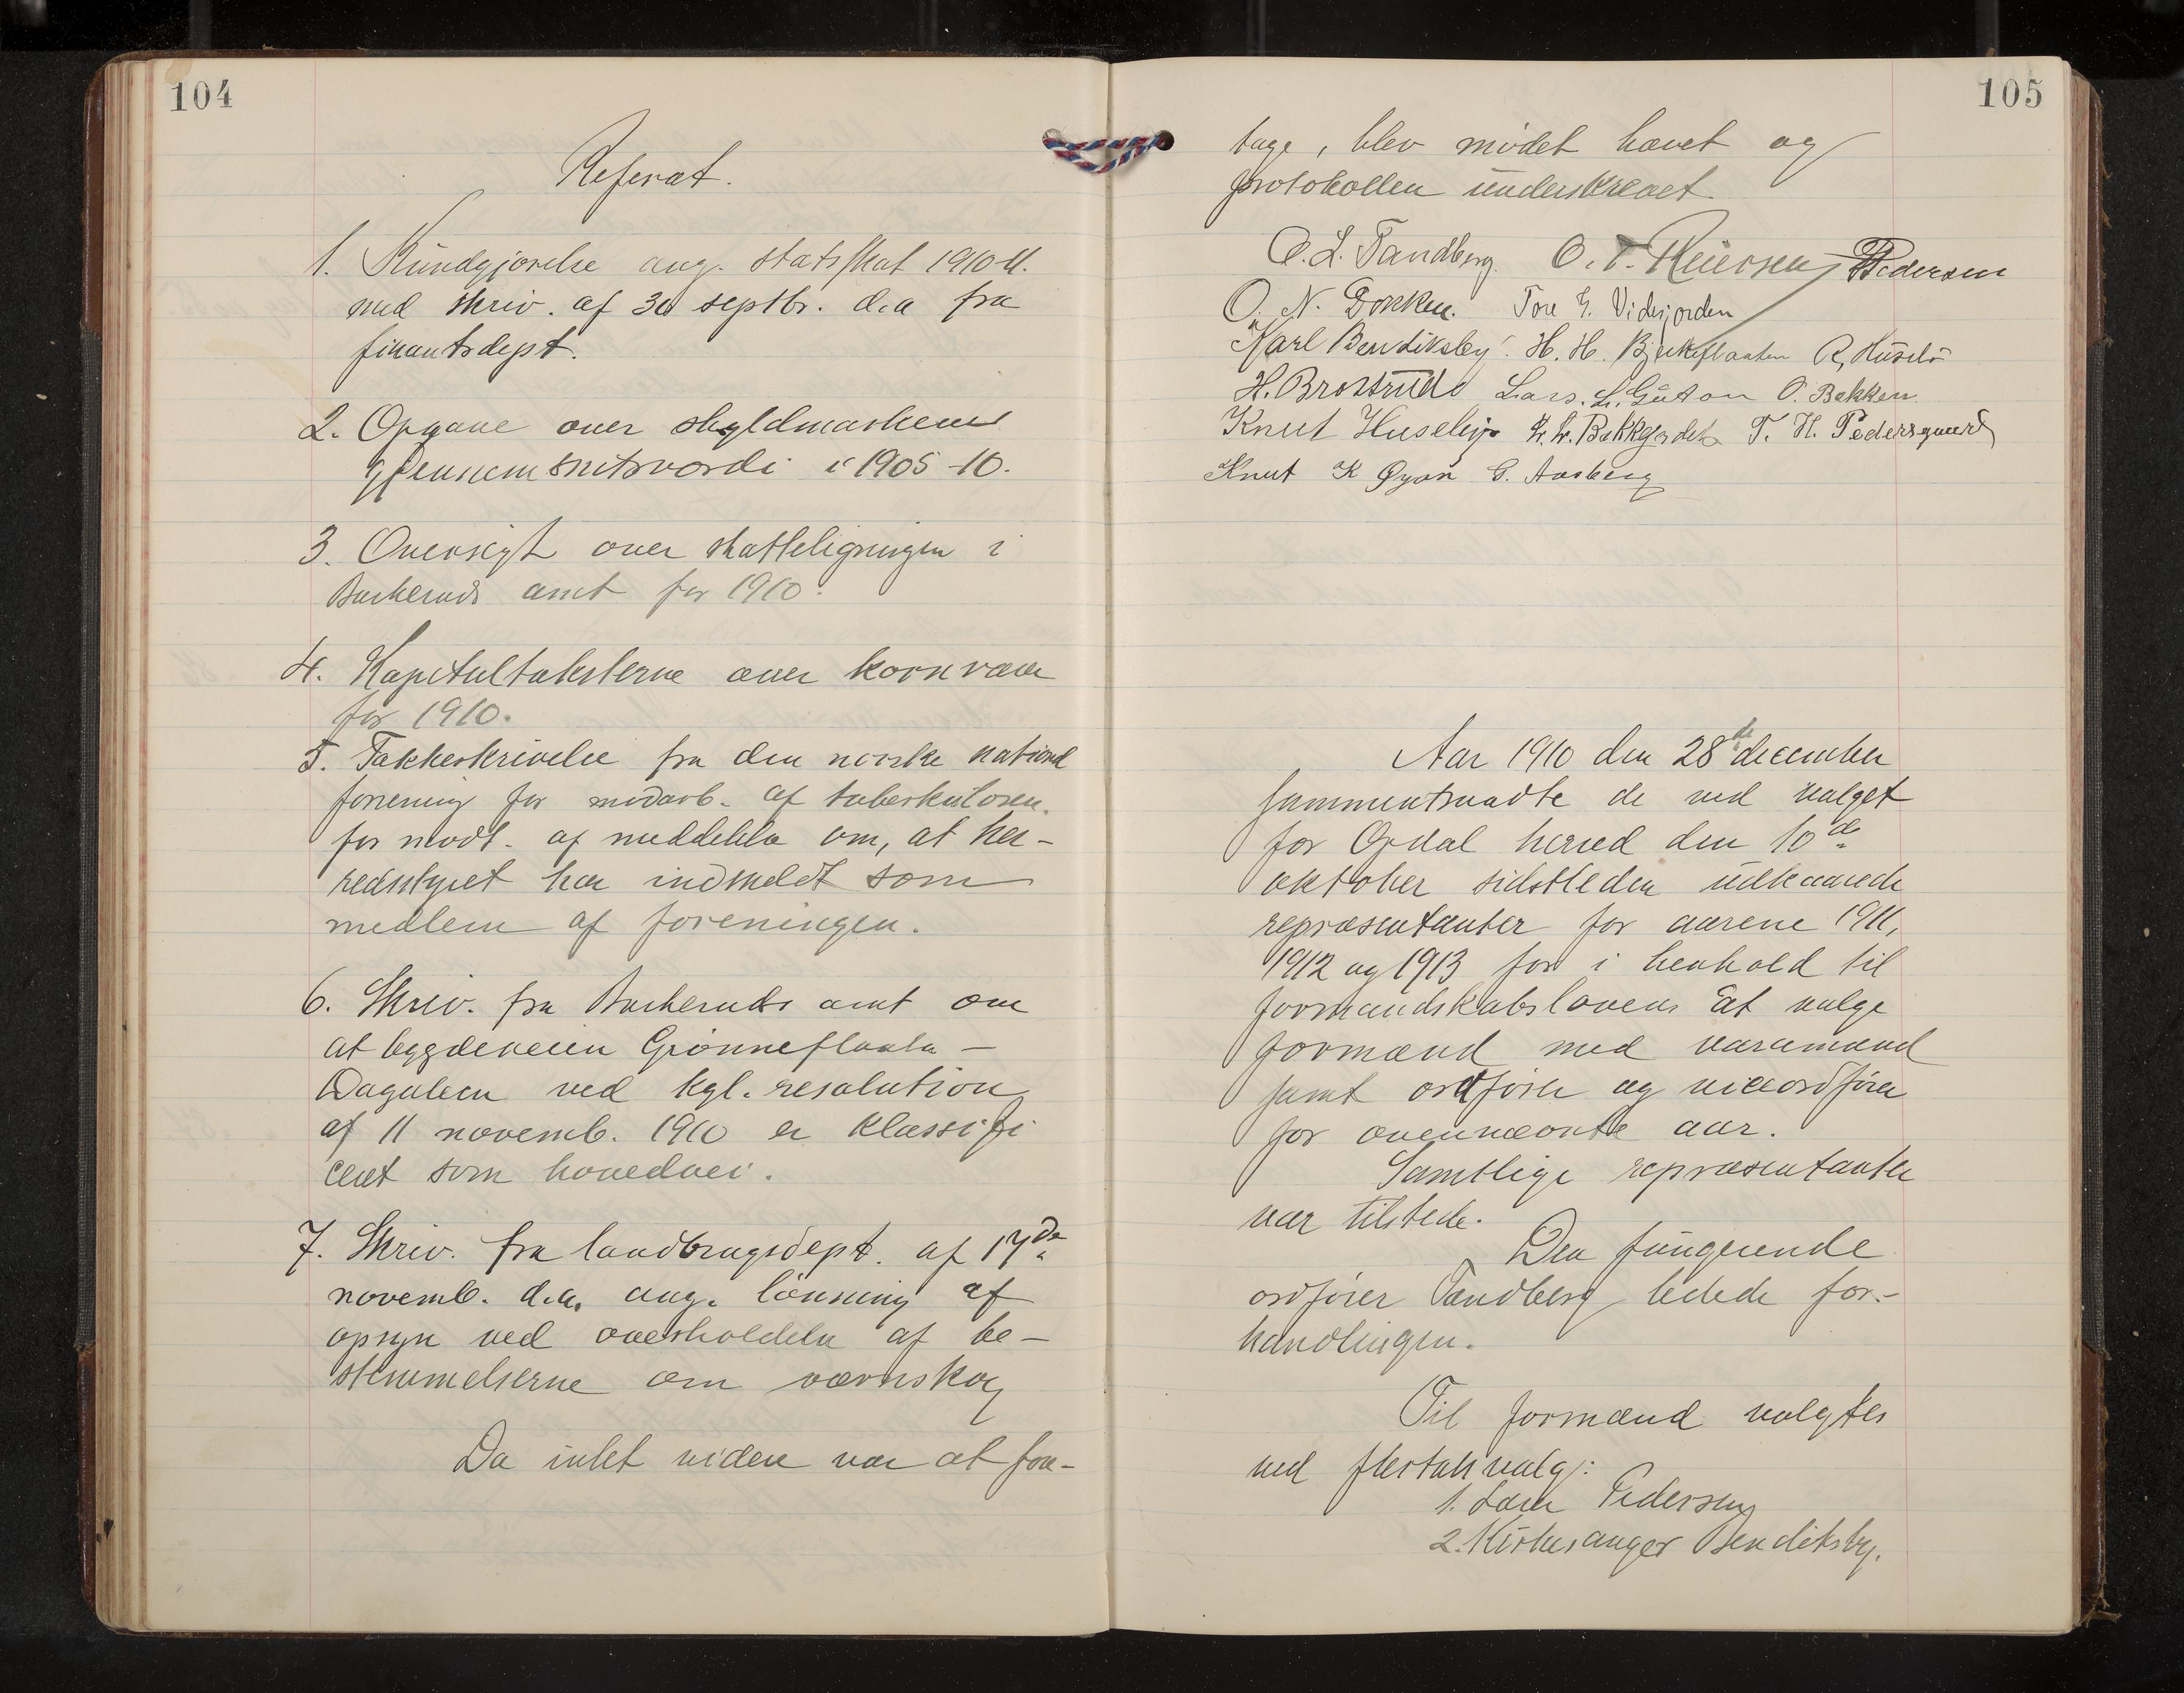 104
Referat.
1. Kundgjørelse ang. statsskat 1910-11.
med skriv. af 30 septbr. d.a fra
finantsdept.
2. Opgave over skyldmarkens
gjennemsnitsværdi i 1905-10.
3. Oversigt over skatteligningen i
Buskeruds amt for 1910.
4. Kapitultaksterne over kornvarer
for 1910.
5. Takkeskrivelse fra den norske national
forening for modarb. af tuberkulosen.
for modt. af meddelelse om, at her-
redsstyret har indmeldt som
medlem af foreningen.
6. Skriv. fra Buskeruds amt om
at bygdeveien Grønneflaata -
Dagalien ved kgl. resolution
af 11 novemb. 1910 er klassifi
ceret som hovedvei.
7. Skriv. fra landbrugsdept. af 17de
novemb. d.a. ang. lønning af
opsyn ved overholdelse af be-
stemmelserne om vernskog
Da intet videre var at fore-
105
tage, blev mødet hævet og
protokollen underskrevet.
O. L. Tandberg. O. T. Reiersen Pedersen
O. N. Dokken. Tore E. Vidsjorden
Karl Bendiksby. H. H. Bjerkeflaaten
H. Brostrud Lars. L. O. Bakken
Knut Huseby T. H. Pedersgaard
Knut K Øyan G. Aasberg
Aar 1910 den 28de december
sammentraadte de ved valget
for Opdal herred den 10de
oktober sidstleden udkaarede
repræsentanter for aarene 1911,
1912 og 1913 for i henhold til
formandskabslovens at vælge
formænd med varamænd
samt ordfører og viceordfører
for ovennævnte aar.
Samtlige repræsentanter
var tilstede.
Den fungerende
ordfører Tandberg ledede for-
handlingen.
Til formænd valgtes
ved flertalsvalg:
1. Pedersen
2. Kirkesanger Bendiksby.